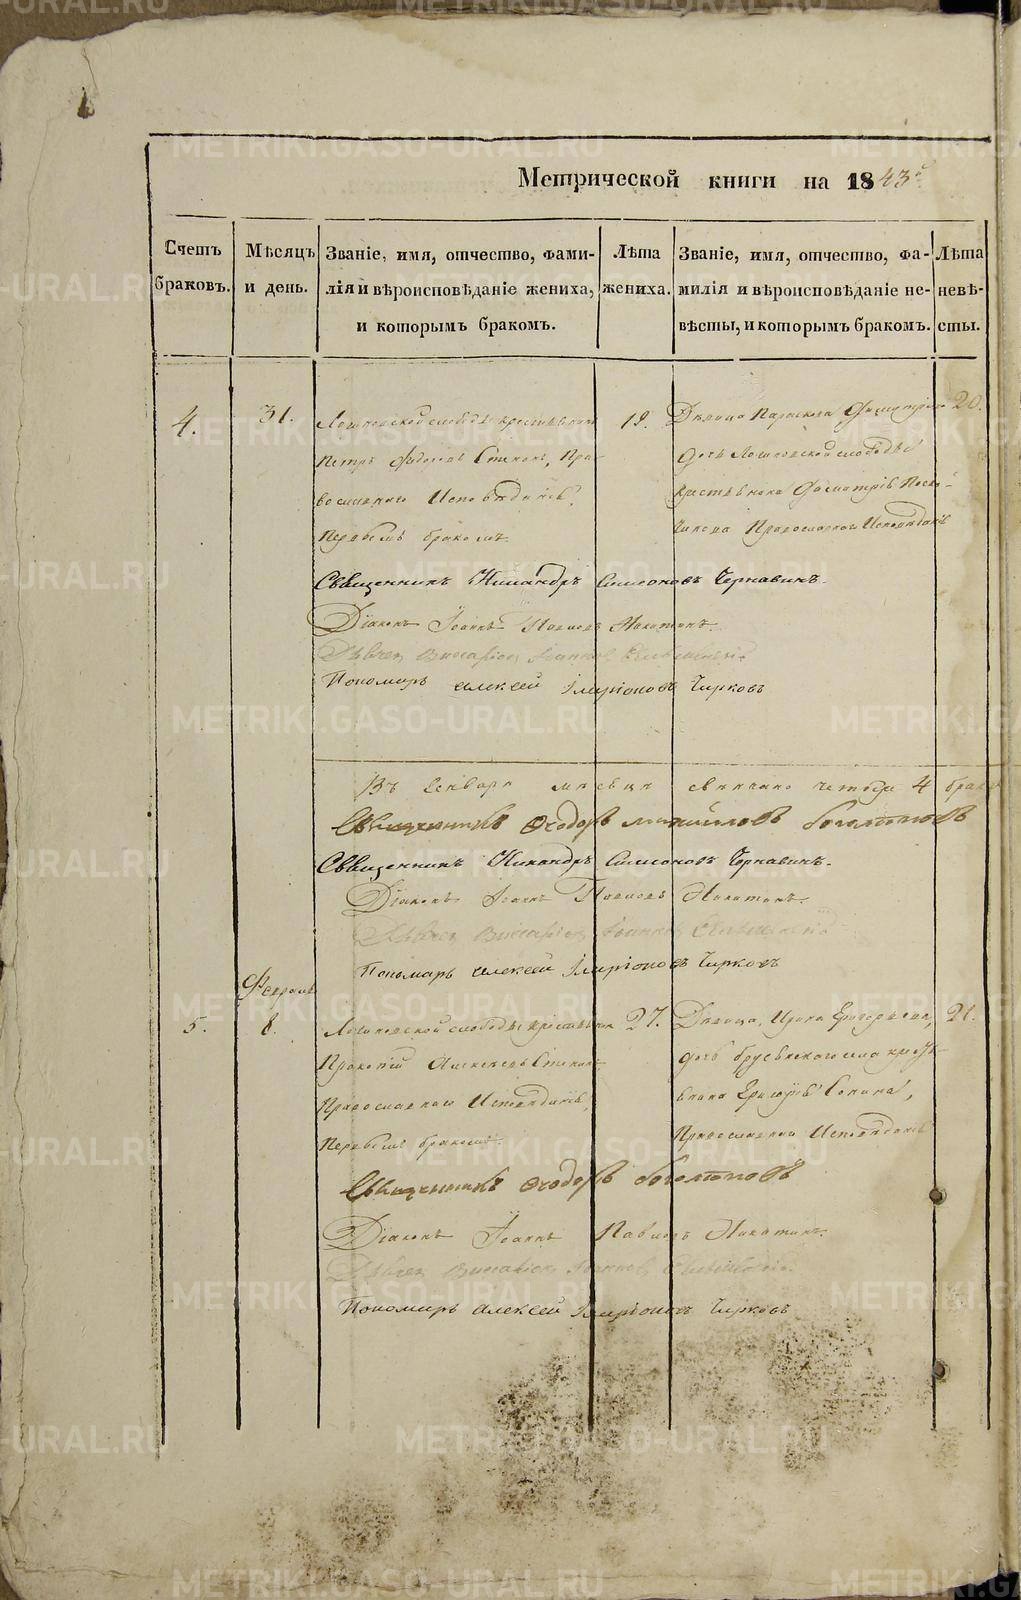 Метрической книги на 1843й
Счетъ браковъ.
Мѣсяцъ и день.
Званіе, имя, отчество, фами-
лія и вѣроисповѣданіе жениха,
и которымъ бракомъ.
Лѣта
жениха.
Званіе, имя, отчество, фа-
милія и вѣроисповѣданіе не-
вѣсты, и которымъ бракомъ.
Лѣта
невѣ-
сты.
4.
31.
слободы крестьянинъ
Петръ Федоровъ Пра-
вославнаго Исповѣданія
Первымъ бракомъ
19.
Дѣвица Параскева
дочь слободы
Православнаго Исповѣданія
20.
Священникъ Никандръ Симеоновъ Чернавинъ.
Діаконъ Іоаннъ Павловъ Никитинъ.
Виссаріонъ Іоанновъ
Пономарь Алексей Іларіоновъ Чирковъ
Въ Генваре месяце венчано четыре 4 брака
Священникъ Ѳеодоръ Михайловъ Боголюбовъ
Священникъ Никандръ Симеоновъ Чернавинъ.
Діаконъ Іоаннъ Павловъ Никитинъ.
Виссаріонъ Іоанновъ
Пономарь Алексей Іларіоновъ Чирковъ
Февраль
5.
8.
слободы крестьянинъ
Прокопій Алексеевъ
Православнаго Исповѣданія,
Первымъ бракомъ.
27.
Дѣвица, Ирина Григорьева,
дочь села кресть-
янина Григорія
Православнаго Исповѣданія
21.
Священникъ Ѳеодоръ Боголюбовъ
Діаконъ Іоаннъ Павловъ Никитинъ.
Виссаріонъ Іоанновъ
Пономарь Алексей Іларіоновъ Чирковъ
METRIKI.GASO-URAL.RU